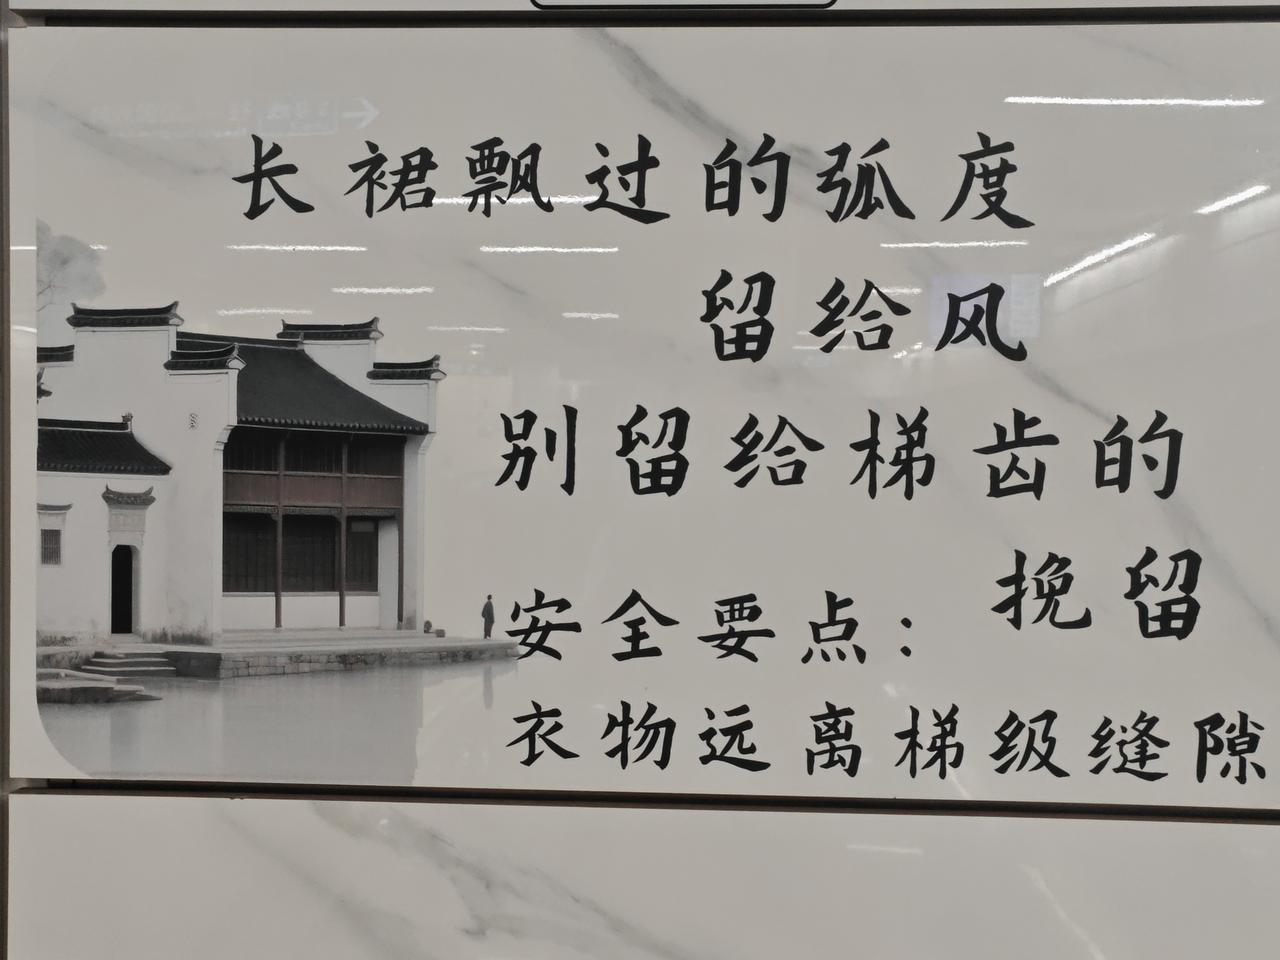 长裙飘过的弧度
留给风
别留给梯齿的
挽留
安全要点：
衣物远离梯级缝隙